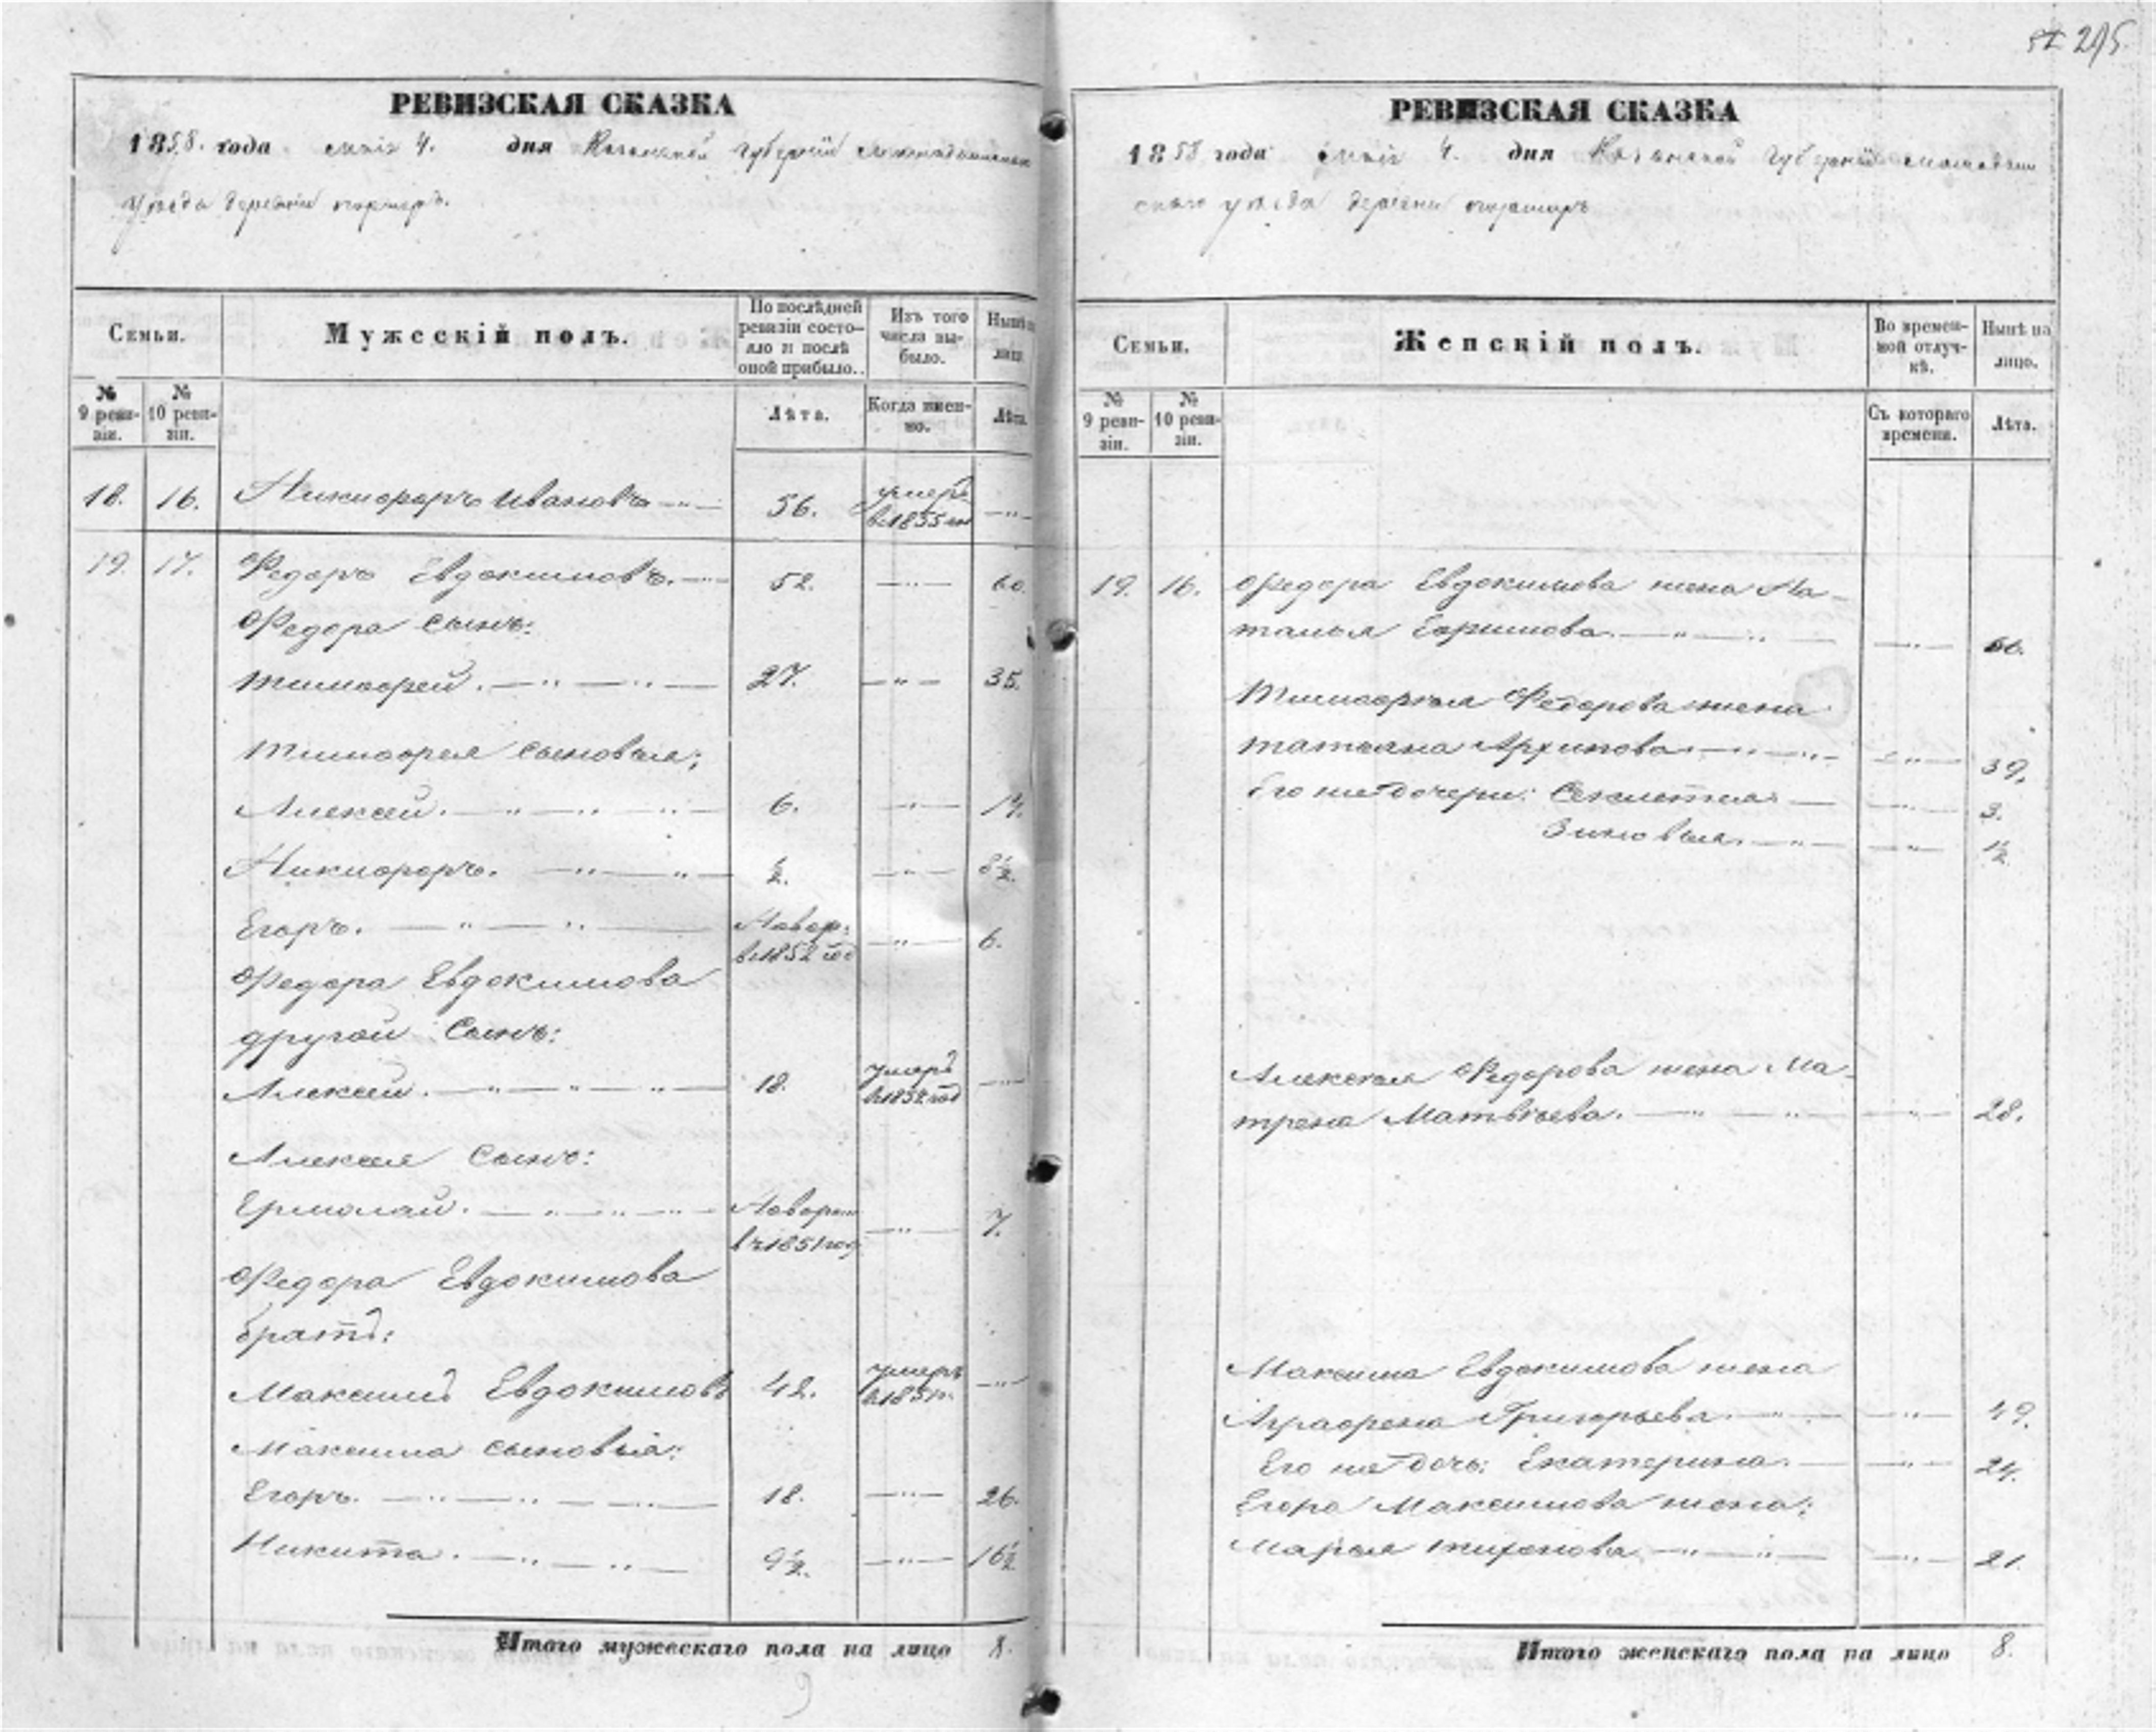 215
РЕВИЗСКАЯ СКАЗКА
1858. года маія 4. дня Казанской губерніи
Уѣзда деревни
Семьи.
Мужескій полъ.
По послѣдней ревизіи состояло и послѣ оной прибыло.
Изъ того числа выбыло.
Нынѣ
лицо
№ 9 ревизіи.
№ 10 ревизіи.
Лѣта.
Когда именно.
Лѣта.
18. 16. Никифоръ Ивановъ 56. умеръ въ 1855 год
19. 17. Федоръ Евдокимовъ. 52. 60.
Федора сынъ:
Тимофей. 27. 35.
Тимофея сыновья:
Алексей. 6. 14.
Никифоръ. ½. 8½.
Егоръ. Новор: въ 1852 год 6.
Федора Евдокимова
другой сынъ:
Алексей. 18. умеръ год
Алексея сынъ:
Ермолай. Новорож въ 1851 год 7.
Федора Евдокимова
братъ:
Максимъ Евдокимовъ 42. умеръ
Максима сыновья:
Егоръ. 18. 26.
Никита. 9½. 16½
Итого мужескаго пола на лицо 8.
РЕВИЗСКАЯ СКАЗКА
1858 года маія 4. дня Казанской губерніи
скаго уѣзда деревни
Семьи.
Женскій полъ.
Во временной отлучкѣ.
Нынѣ на лицо.
№ 9 ревизіи.
№ 10 ревизіи.
Съ котораго времени.
Лѣта.
19. 16. Федора Евдокимова жена На-
талья Ефимова. 60.
Тимофея Федорова жена
Татьяна Архипова 39.
Его же дочери: Секлетея 3.
Зиновья. ½
Алексея Федорова жена Ма-
трена Матвѣева. 28.
Максима Евдокимова жена
Аграфена Григорьева. 49.
Его же дочь: Екатерина. 24.
Егора Максимова жена:
Марья Тихонова 21.
Итого женскаго пола на лицо 8.